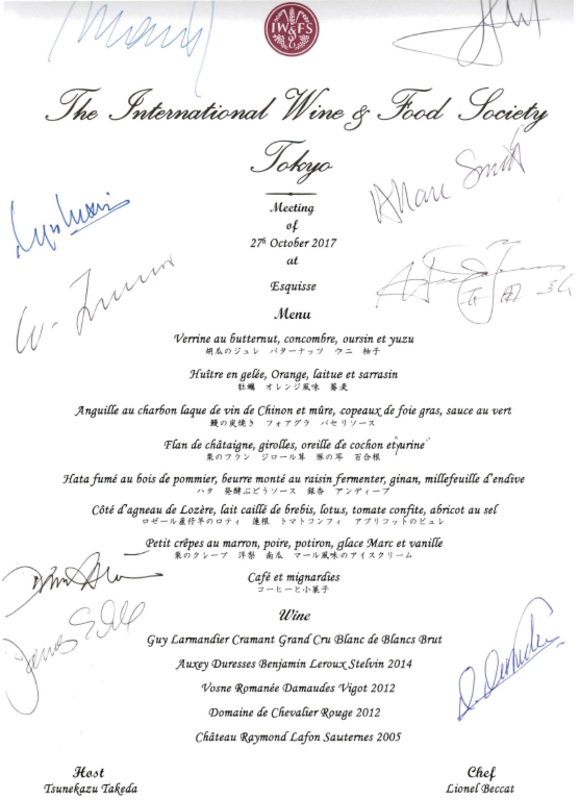 IW&FS
The International Wine & Food Society
Tokyo
Meeting
of
27th October 2017
at
Esquisse
Menu
Verrine au butternut, concombre, oursin et yuzu
胡瓜のジュレ バターナッツ ウニ 柚子
Huître en gelée, Orange, laitue et sarrasin
牡蠣 オレンジ風味 蕎麦
Anguille au charbon laque de vin de Chinon et mûre, copeaux de foie gras, sauce au vert
鰻の炭焼き フォアグラ パセリソース
Flan de châtaigne, girolles, oreille de cochon et yurine
栗のフラン ジロール茸 豚の耳 百合根
Hata fumé au bois de pommier, beurre monté au raisin fermenter, ginan, millefeuille d'endive
ハタ 発酵ぶどうソース 銀杏 アンディーブ
Côté d'agneau de Lozère, lait caillé de brebis, lotus, tomate confite, abricot au sel
ロゼール産仔羊のロティ 蓮根 トマトコンフィ アプリコットのピュレ
Petit crêpes au marron, poire, potiron, glace Marc et vanille
栗のクレープ 洋梨 南瓜 マール風味のアイスクリーム
Café et mignardies
コーヒーと小菓子
Wine
Guy Larmandier Cramant Grand Cru Blanc de Blancs Brut
Auxey Duresses Benjamin Leroux Stelvin 2014
Vosne Romanée Damaudes Vigot 2012
Domaine de Chevalier Rouge 2012
Château Raymond Lafon Sauternes 2005
Host
Tsunekazu Takeda
Chef
Lionel Beccat